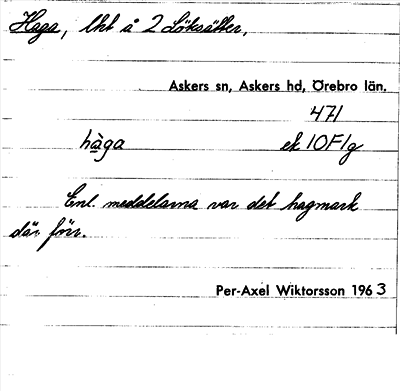 Haga, lht å 2 Löksätter.
Askers sn, Askers hd, Örebro län.
471
hàga ek 10F1g
Enl. meddelarna var det hagmark
där förr.
Per-Axel Wiktorsson 1963